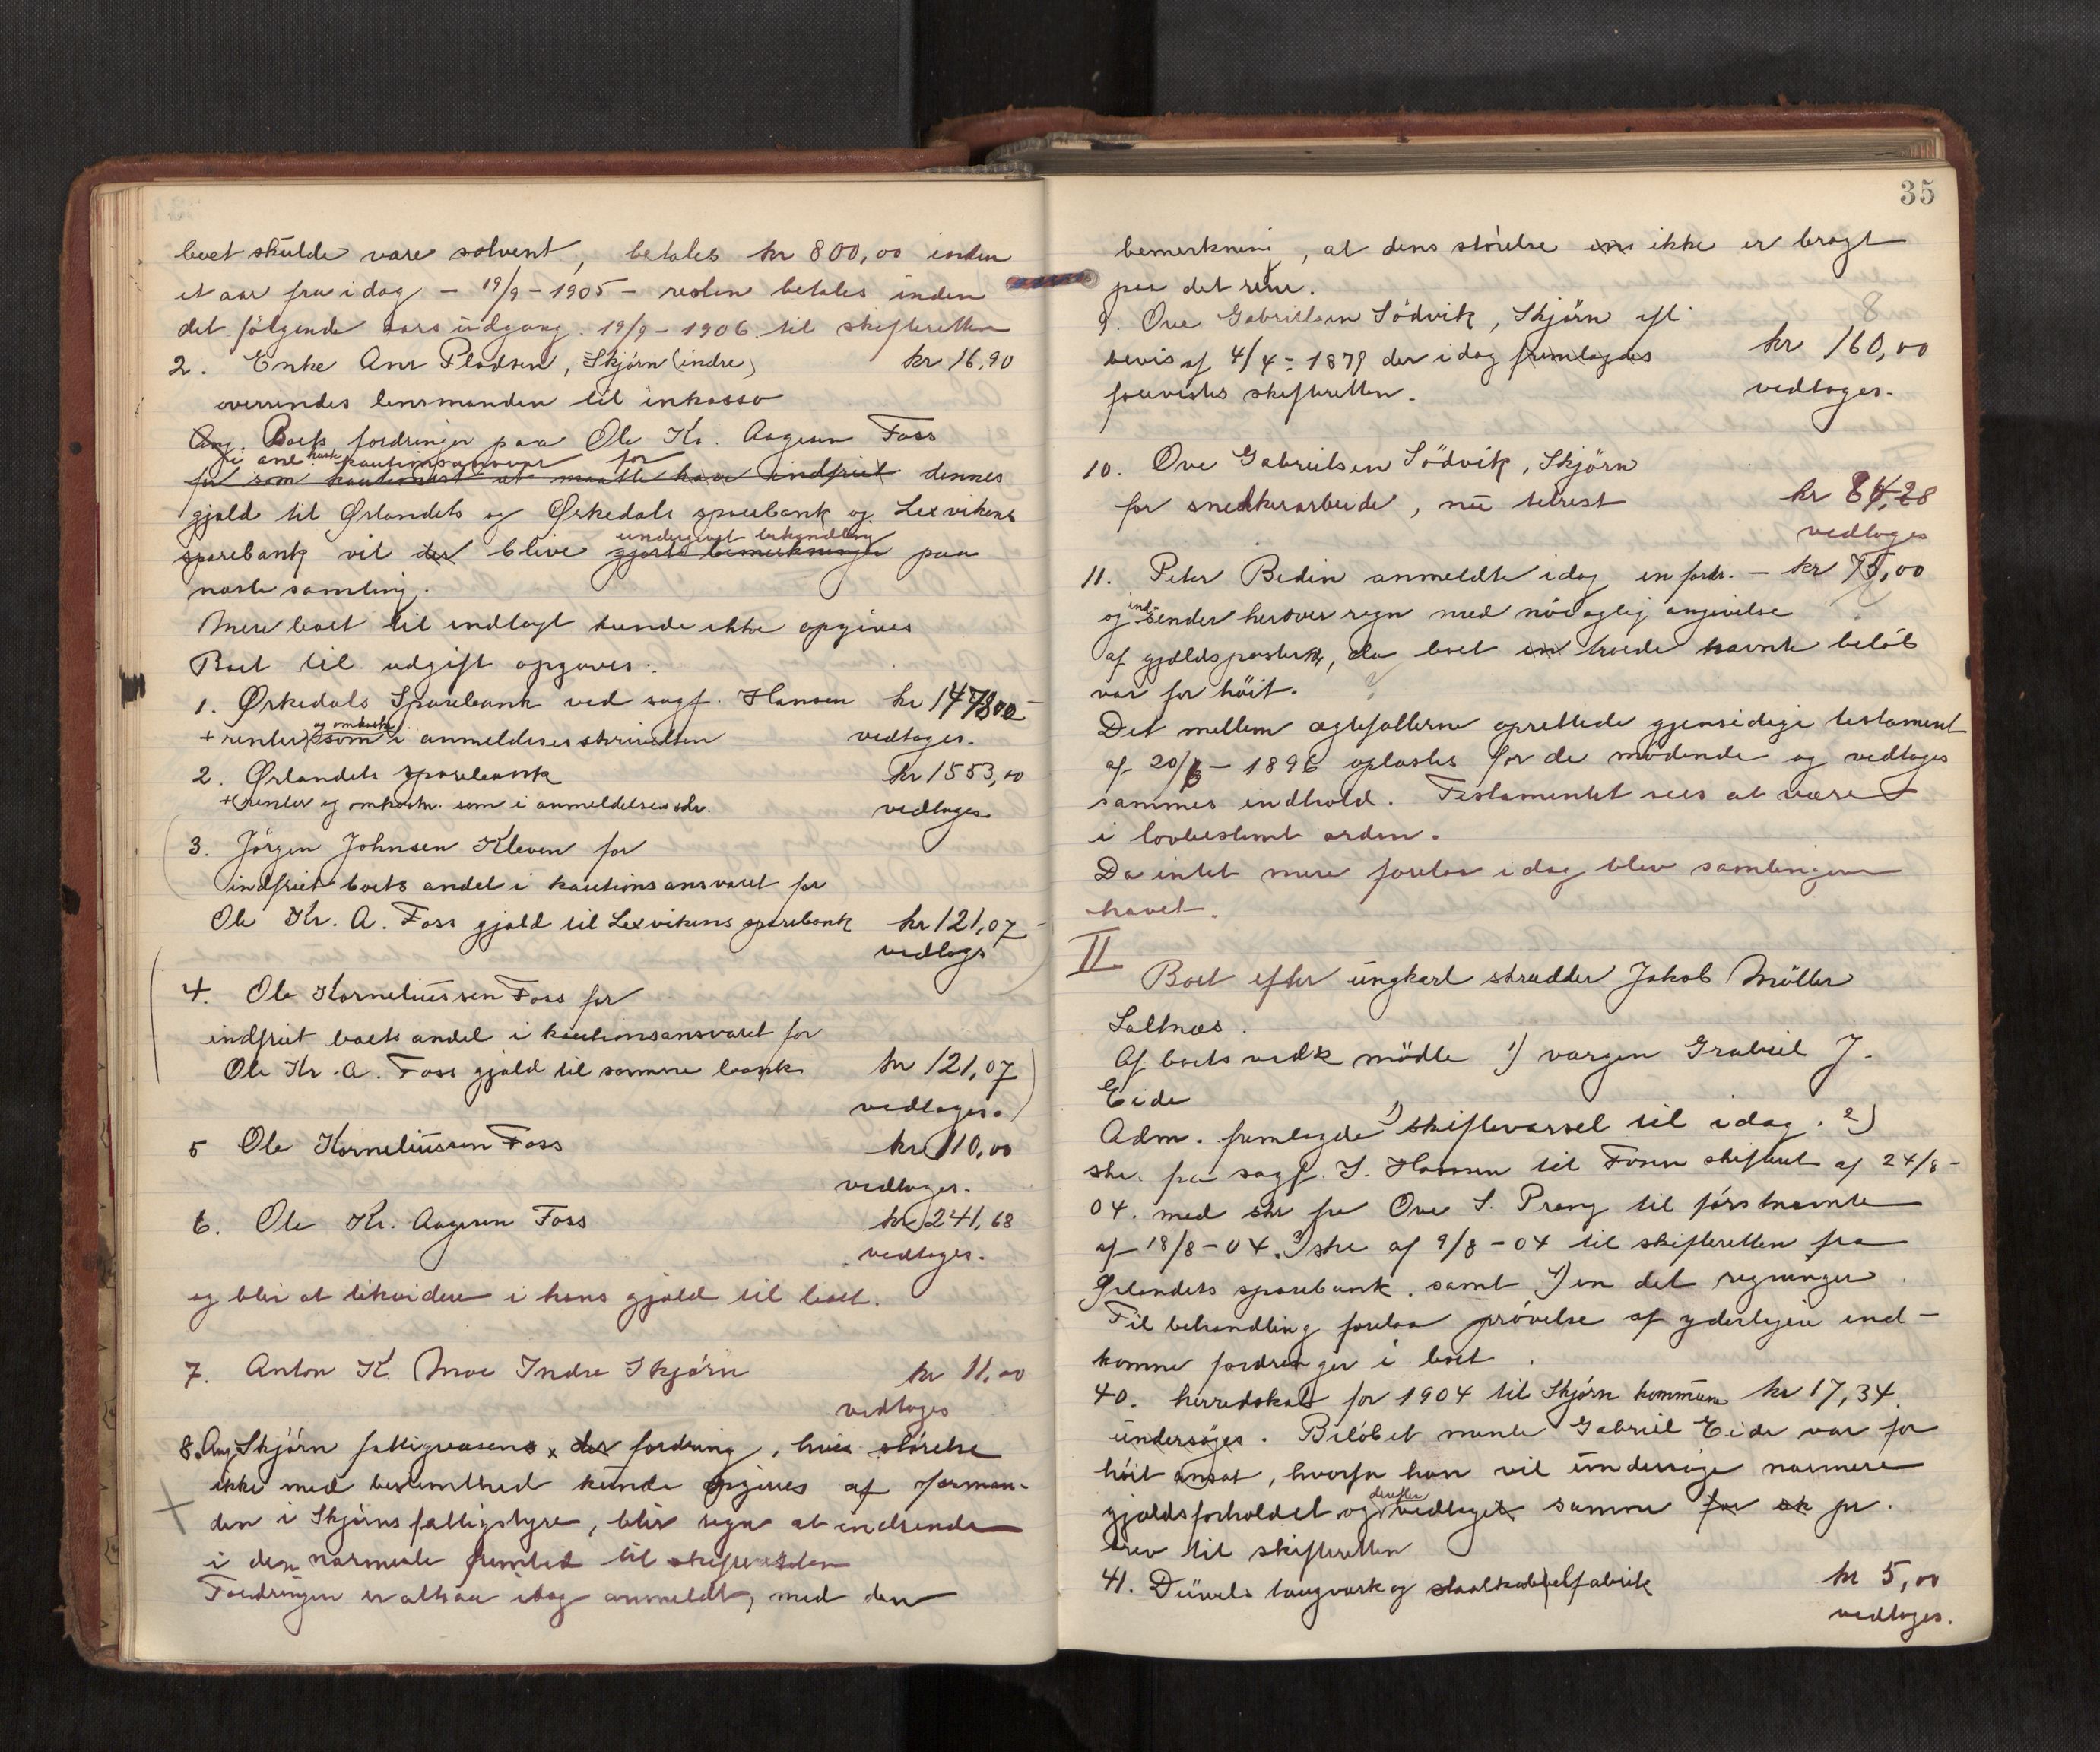 boet skulde være solvent, betales kr 800,00 inden
et aar fra i dag – 19/9 – 1905 – resten betales inden
det følgende aars udgang. 19/9 – 1906 til skifteretten
2. Enke Ane Pladsen, Skjørn (indre) kr 16,90
oversendes lensmanden til inkasso
Ang. Boets fordringer paa Ole Kr. Aagesen Foss
i anl. kautionsansvar for
for som kautionist at maatte have indfriet dennes
gjæld til Ørlandets og Ørkedals sparebank og Lexvikens
undergivet behandling
sparebank vil der blive gjort bemerkninger paa
næste samling.
Mere boet til indtægt kunde ikke opgives
Boet til udgift opgaves:
1. Ørkedals Sparebank ved sagf. Hansen kr 1478,00
og omkostn.
+ renter som i anmeldelsesskrivelsen vedtoges.
2. Ørlandets sparebank kr 1553,00
+ renter og omkostn. som i anmeldelsesskr. vedtoges
3. Jørgen Johnsen Kleven for
indfriet boets andel i kautionsansvaret for
Ole Kr. A. Foss gjæld til Lexvikens sparebank kr 121,07
vedtoges
4. Ole Korneliussen Foss for
indfriet boets andel i kautionsansvaret for
Ole Kr. A. Foss gjæld til samme bank kr 121,07
vedtoges.
5 Ole Korneliussen Foss kr 110,00
vedtoges.
6. Ole Kr. Aagesen Foss kr 241,68
vedtoges.
og blir at likvidere i hans gjæld til boet.
7. Anton K. Moe Indre Skjørn kr 11,00
vedtoges
8. Ang Skjørn fattigvæsens x der fordring, hvis størelse
ikke med bestemthed kunde opgives af forman-
den i Skjørns fattigstyre, blir regn at indsende
i den nærmeste fremtid til skifteretten
Fordringen er altsaa idag anmeldt, med den
35
bemerkning, at dens størelse en ikke er bragt
paa det rene.
9. Ove Gabrielsen Sødvik, Skjørn efl.
bevis af 4/4 – 1879 der i dag fremlagdes kr 160,00
forevistes skifteretten. vedtoges.
10. Ove Gabrielsen Sødvik, Skjørn
for snedkerarbeide, nu tilrest kr 84,28
vedtoges
11. Peter Bedin anmeldte idag en fordr. – kr 75,00
ind-
og sender herover regn med nøiagtig angivelse
af gjældsposterne, da boet en troede nævnte beløb
var for høit.
Det mellem ægtefællerne oprettede gjensidige testament
af 20/6 – 1896 oplæstes for de mødende og vedtoges
sammes indhold. Testamentet sees at være
i lovbestemt orden.
Da intet mere forelaa idag blev samlingen
hævet.
II
Boet efter ungkarl skrædder Jakob Møller
Saltnæs.
Af boets vedk mødte 1) værgen Grabriel J.
Eide
Adm. fremlagde 1) skiftevarsel til idag. 2)
skr. fra sagf. S. Hansen til Fosen skifteret af 24/8 –
04. med skr fra Ove S. Prang til førstnævnte
af 18/8 – 04. 3) skr af 9/8 – 04 til skifteretten fra
Ørlandets sparebank. samt 4) en del regninger
Til behandling forelaa prøvelse af yderligere ind-
komne fordringer i boet.
40. herredskat for 1904 til Skjørn kommune kr 17,34.
undersøges. Beløbet mente Gabriel Eide var for
høit ansat, hvorfor han vil undersøge nærmere
derefter
gjældsforholdet og vedtaget samme for sk pr.
brev til skifteretten
41. Düvels taugværk og staalkabelfabrik kr 5,00
vedtoges.